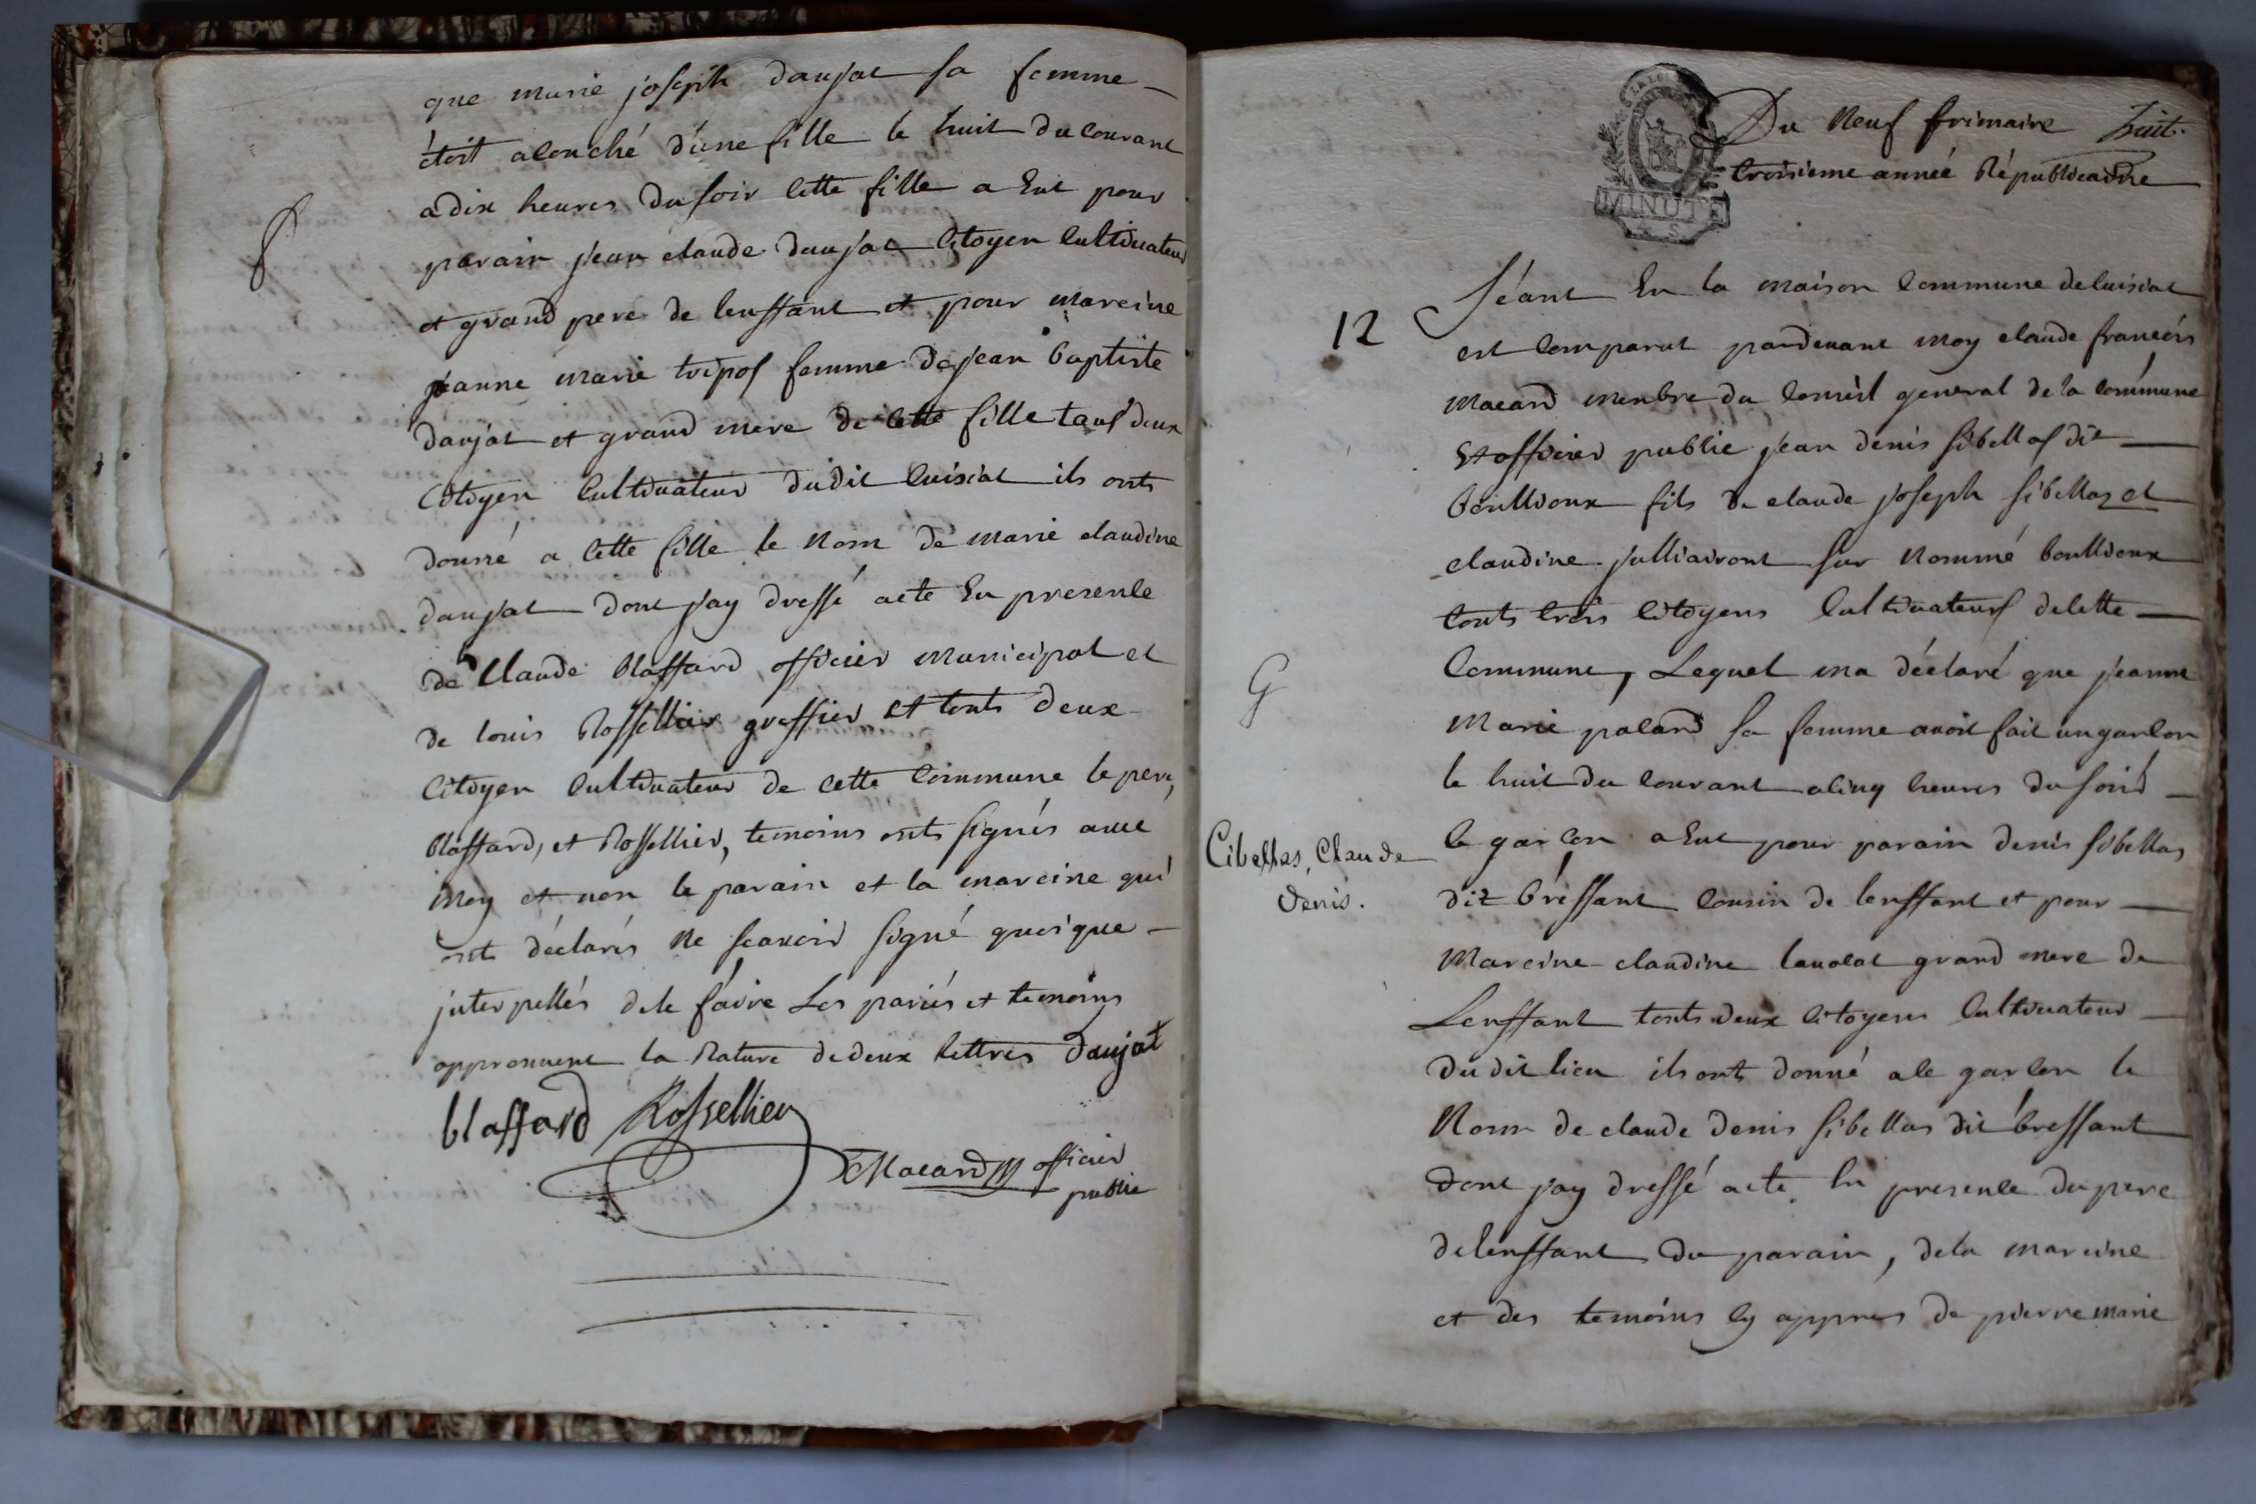 que marie joseph daujat sa femme
étoit acouché d'une fille le huit du courant
a dix heures du soir cette fille a Eut pour
parain jean claude daujat Citoyen Cultivateur
et grand pere de lenffant et pour mareine
jeanne marie tripos femme de jean baptiste
daujat et grand mere de cette fille tous deux
Citoyen Cultivateur dudit cuisiat ils onts
donné a cette fille le Nom de marie claudine
daujat dont j'ay dressé acte En presence
de Claude blaffard officier municipal et
de louis Rossellier greffier et touts deux
Citoyen Cultivateur de cette Commune le pere,
blaffard, et Rossellier, temoins onts signés avec
Moy et non le parain et la mareine qui
onts déclarés Ne scavoir signé quoique
interpellés de le faire Les pariés et temoins
approuvent la Rature de deux lettres daujat
blaffard Rossellier
Macard officier
public
P
Du Neuf frimaire huit.
troisieme année Républicaine
MINUTE
Séant En la maison Commune de cuisiat
12
est Comparut pardevant Moy claude francois
Macard menbre du Conseil general de la commune
Et officier public jean denis sibellas dit
boullioux fils de claude joseph sibellas et
claudine julliairont sur Nommé boullioux
touts trois Citoyens Cultivateurs de cette
Commune, Lequel ma déclaré que jeanne
G
Marie palard sa femme avoit fait un garcon
le huit du courant a cinq heures du soir
Cibellas, Claude
Denis.
ce garcon a Eut pour parain denis sibellas
dit bréssant Cousin de lenffant et pour
Mareine claudine grand mere de
Lenffant touts deux Citoyens Cultivateur
du dit lieu ils onts donné a ce garcon le
Nom de claude denis sibellas dit bressant
dont j'ay dressé acte En presence du pere
de lenffant du parain, de la mareine
et des temoins cy appres de pierre marie